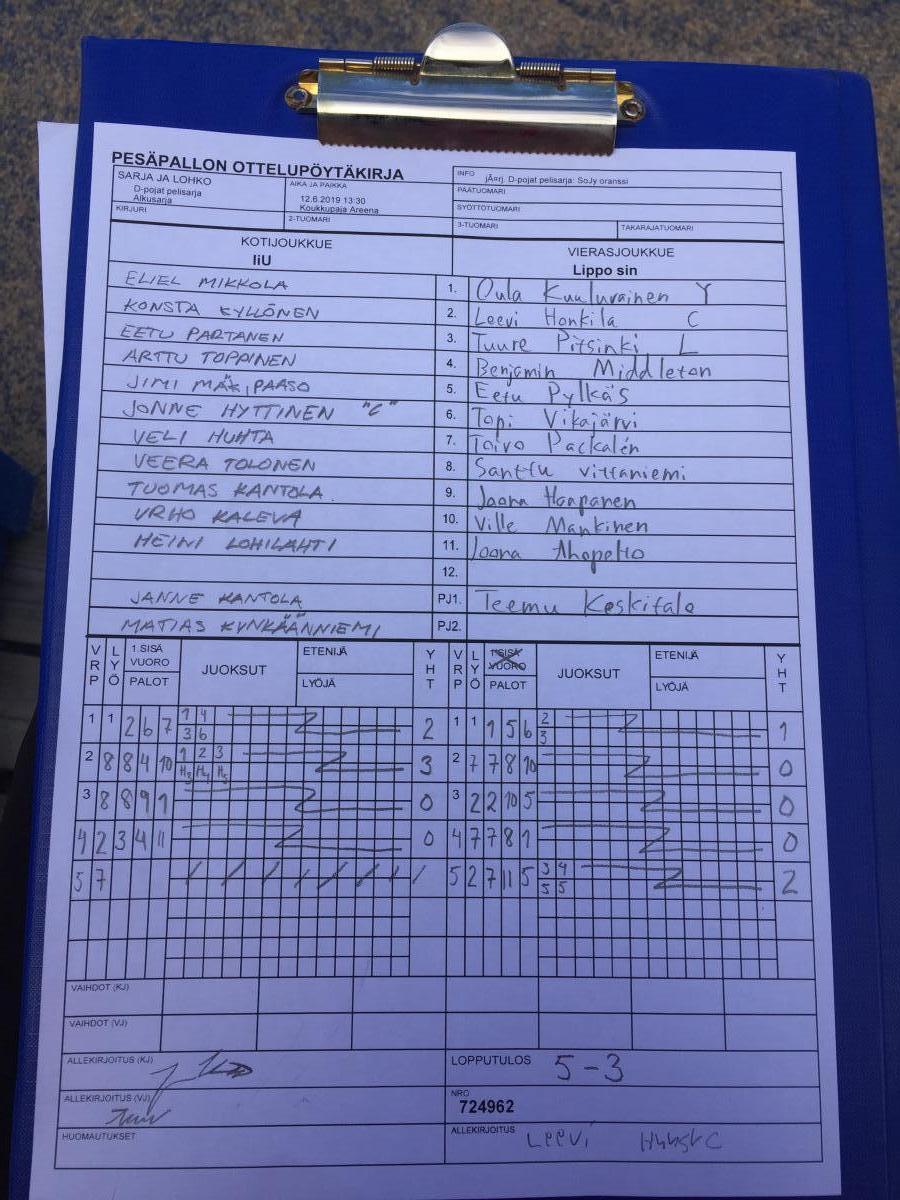 PESÄPALLON OTTELUPÖYTÄKIRJA
SARJA JA LOHKO
D-pojat pelisarja
Alkusarja
AIKA JA PAIKKA
12.6.2019 13:30
Koukkupaja Areena
INFO jÄ¤rj. D-pojat pelisarja: SoJy oranssi
PÄÄTUOMARI
SYÖTTÖTUOMARI
KIRJURI
2-TUOMARI
3-TUOMARI
TAKARAJATUOMARI
KOTIJOUKKUE
IiU
VIERASJOUKKUE
Lippo sin
ELIEL MIKKOLA 1. Oula Kuuluvainen Y
KONSTA KYLLÖNEN 2. Leevi Honkila C
EETU PARTANEN 3. Tuure Pitsinki L
ARTTU TOPPINEN 4. Benjamin Middleton
JIMI MÄKIPAASO 5. Eetu Pylkäs
JONNE HYTTINEN "C" 6. Topi Vikajärvi
VELI HUHTA 7. Toivo Packalén
VEERA TOLONEN 8. Santtu Vittaniemi
TUOMAS KANTOLA 9. Joona Haapanen
URHO KALEVA 10. Ville Mankinen
HEINI LOHILAHTI 11. Joona Ahopelto
12.
JANNE KANTOLA PJ1. Teemu Keskitalo
MATIAS KYNKÄÄNNIEMI PJ2.
VRP LYÖ 1.SISÄ VUORO PALOT JUOKSUT ETENIJÄ LYÖJÄ YHT VRP LYÖ 1.SISÄ VUORO PALOT JUOKSUT ETENIJÄ LYÖJÄ YHT
1 1 2 6 7 1 4 2 1 1 1 5 6 2 1
3 6 3
2 8 8 4 10 1 2 3 3 2 7 7 8 10 0
H3 H4 H5
3 8 8 9 1 0 3 2 2 10 5 0
4 2 3 4 11 0 4 7 7 8 1 0
5 7 5 2 7 11 5 3 4 2
5 5
VAIHDOT (KJ)
VAIHDOT (VJ)
ALLEKIRJOITUS (KJ)
LOPPUTULOS 5-3
ALLEKIRJOITUS (VJ)
NRO
724962
HUOMAUTUKSET
ALLEKIRJOITUS Leevi